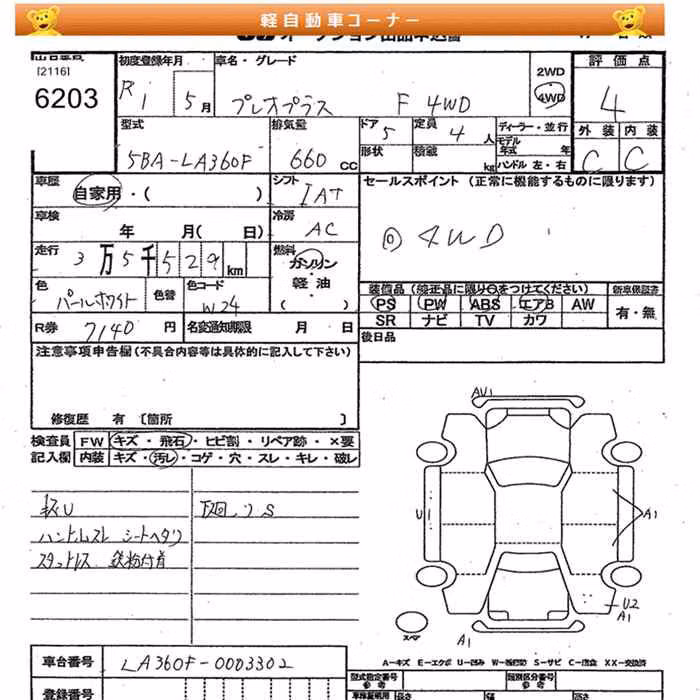 軽自動車コーナー
[2116]
6203
初度登録年月
R1 5月
車名・グレード
プレオプラス F 4WD
2WD
4WD
評価点
4
外装 内装
C C
型式
5BA-LA360F
排気量
660 CC
ドア 5
形状
定員 4 人
積載 kg
ディーラー・並行
モデル年式 年
ハンドル 左・右
車歴
自家用・( )
シフト
IAT
セールスポイント (正常に機能するものに限ります)
◎ 4WD
車検
年 月( 日)
冷房
AC
走行
3万5千529km
燃料
ガソリン
・
軽油
( )
色
パールホワイト
色替
色コード
W24
装備品(純正品に限り○をつけてください)
PS PW ABS エアB AW
SR ナビ TV カワ
新車保証書
有・無
R券 7140 円
名変通知期限 月 日
後日品
注意事項申告欄(不具合内容等は具体的に記入して下さい)
修復歴 有 〔箇所 〕
検査員 FW キズ・飛石・ヒビ割・リペア跡・×要
記入欄 内装 キズ・汚レ・コゲ・穴・スレ・キレ・破レ
下廻リS
ハンドルスレ シートヘタリ
スタットレス 鉄粉付着
AU1
U1
A1
U2
A1
A1
スペア
A-キズ E-エクボ U-凹み W-板金跡 S-サビ C-腐食 XX-交換済
車台番号
LA360F-0003302
登録番号
型式指定番号
類別区分番号